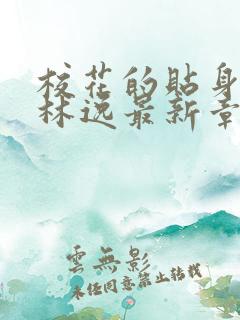 校花的貼身
林逸最新章
雲無影
未经同意禁止转载